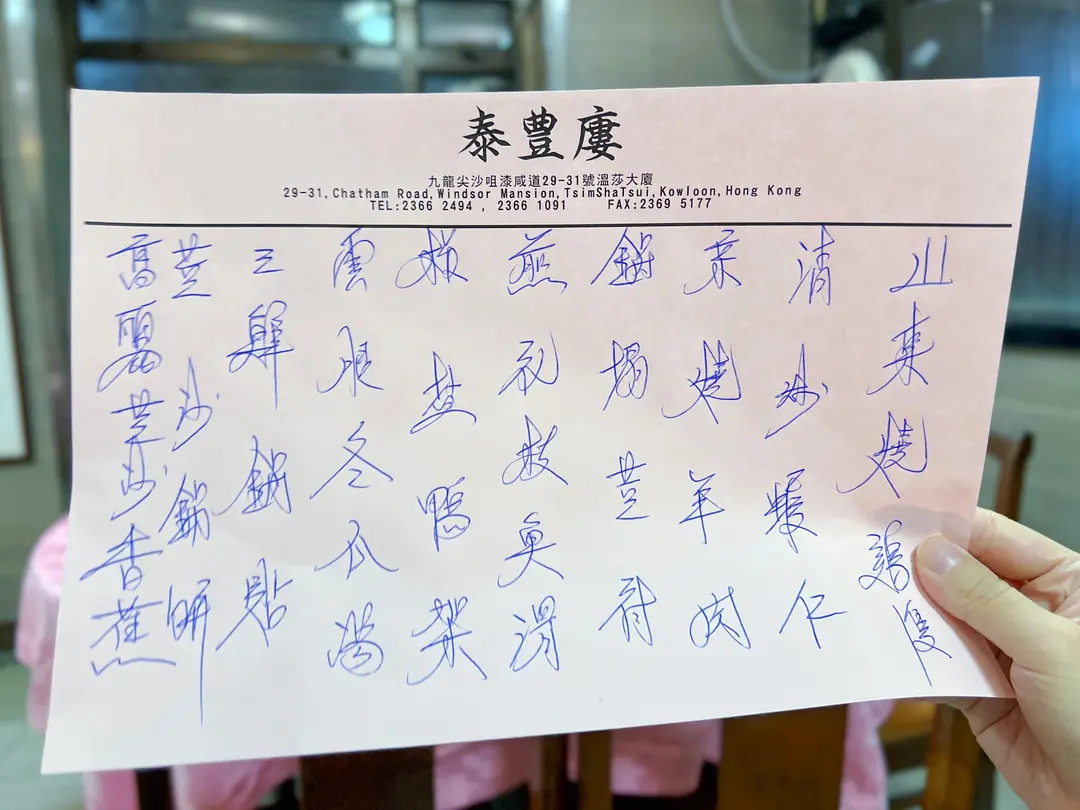 泰豐廔
九龍尖沙咀漆咸道29-31號溫莎大廈
29-31,Chatham Road,Windsor Mansion,TsimShaTsui,Kowloon,Hong Kong
TEL:2366 2494 , 2366 1091 FAX:2369 5177
山東燒鷄隻
清炒蝦仁
京燒羊肉
鍋塌荳付
魚滑
椒盐鴨架
雲腿冬瓜湯
三鮮鍋貼
荳沙鍋餅
高麗荳沙香蕉